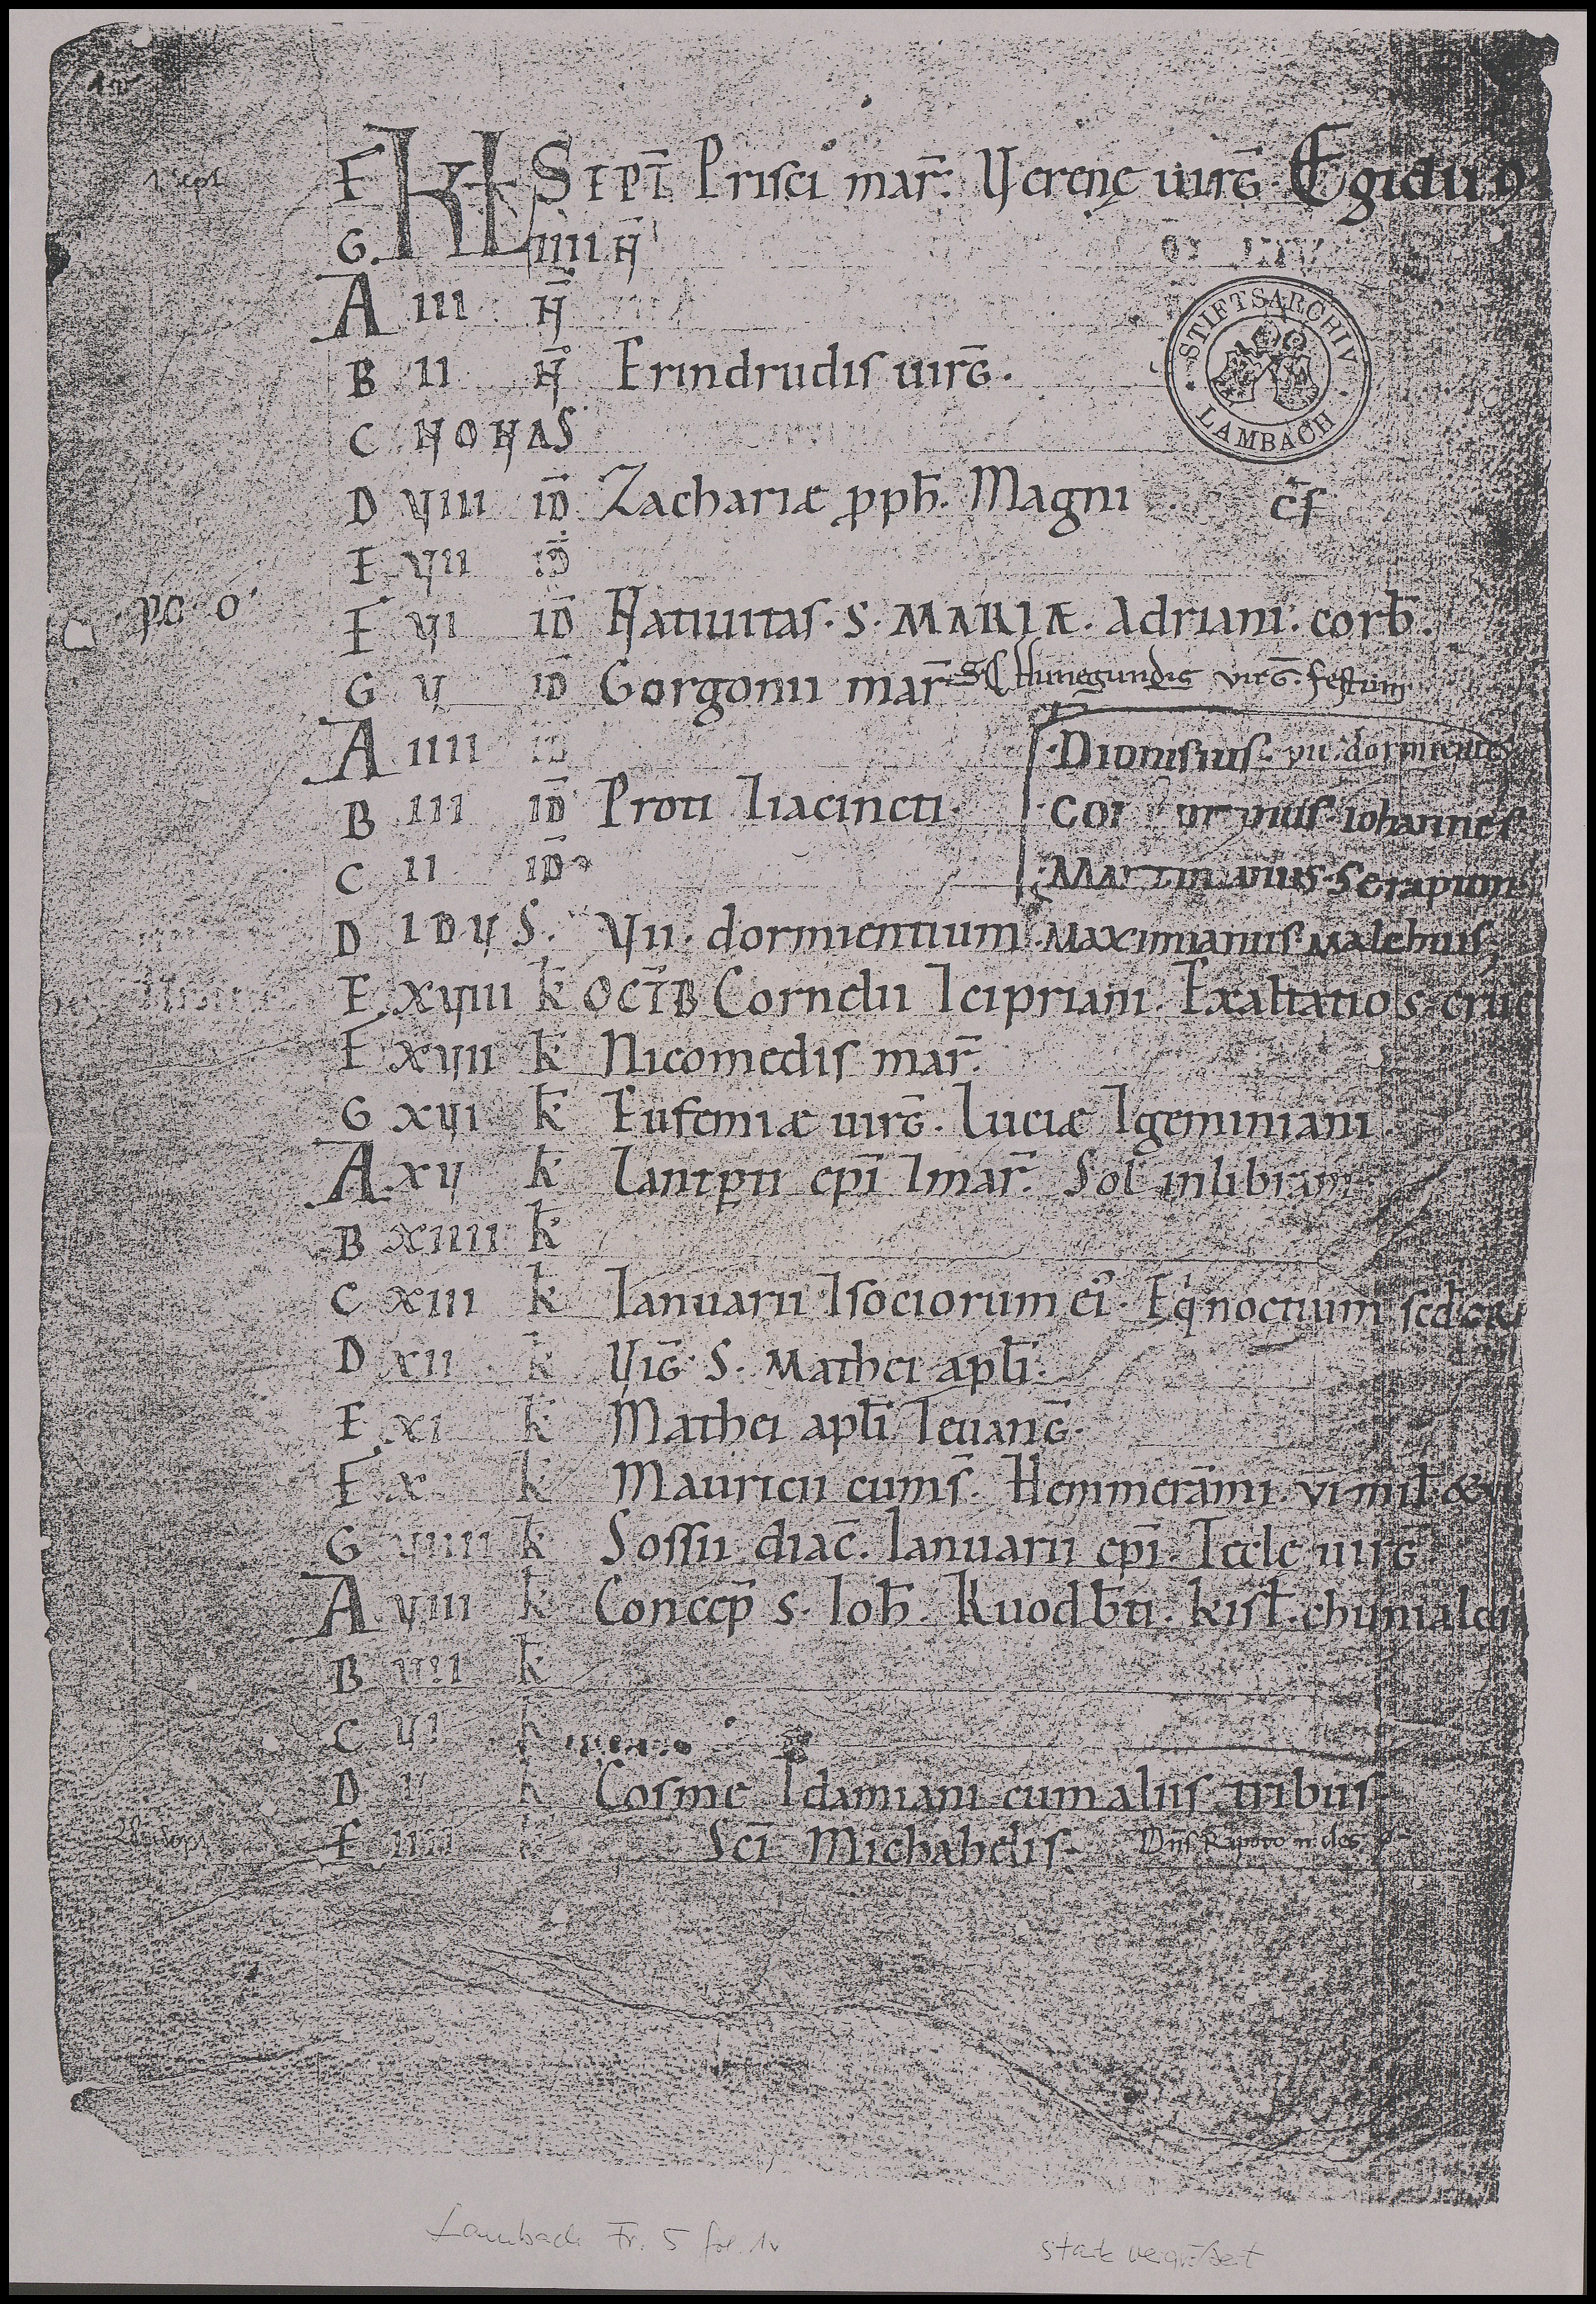 1 Sept.
F KL SEPT̄ Prisci mar̄. Verenę uirḡ. Egidii
G IIII N̄
STIFTSARCHIV LAMBACH
A III N̄
B II N̄ Erindrudis uirḡ.
C NONAS
D VIII ID̄ Zachariæ pph̄. Magni c̄f
E VII ID̄
F VI ID̄ Natiuitas. S. MARIÆ. Adriani. corb̄.
G V ID̄ Gorgonii mar̄ Hunegundis virḡ. festum
A IIII ID̄ Dionisius. vii. dormientes
B III ID̄ Proti ⁊iacincti. iohannes
C II ID̄ Serapion
D IDVS. Vii. dormientium Maximianus Malchus
E XVIII k̄ OCTB̄ Cornelii ⁊cipriani. Exaltatio s. cruc
F XVII k̄ Nicomedis mar̄.
G XVI k̄ Eufemiæ uirḡ. Luciæ ⁊geminiani.
A XV k̄ Lantꝑti epī ⁊mar̄. Sol inlibram
B XIIII k̄
C XIII k̄ Ianuarii ⁊sociorum ei'. Eqͥnoctium
D XII k̄ Viḡ. S. Mathei apl̄i.
E XI k̄ Mathei apl̄i ⁊euanḡ.
F X k̄ Mauricii cum s̄. Hemmerāmi. vi mil. &
G VIIII k̄ Sossii diac̄. Ianuarii epī. Tecle uirḡ.
A VIII k̄ Concep̄ s. Ioh̄. Ruodb̄ti. kisl̄. chunialdi
B VII k̄
C VI k̄
D V k̄ Cosme ⁊damiani cum aliis tribus
E IIII k̄ Sc̄i Michahelis.
28. Sept.
Lambach Fr. 5 fol. 1v
stark vergrößert